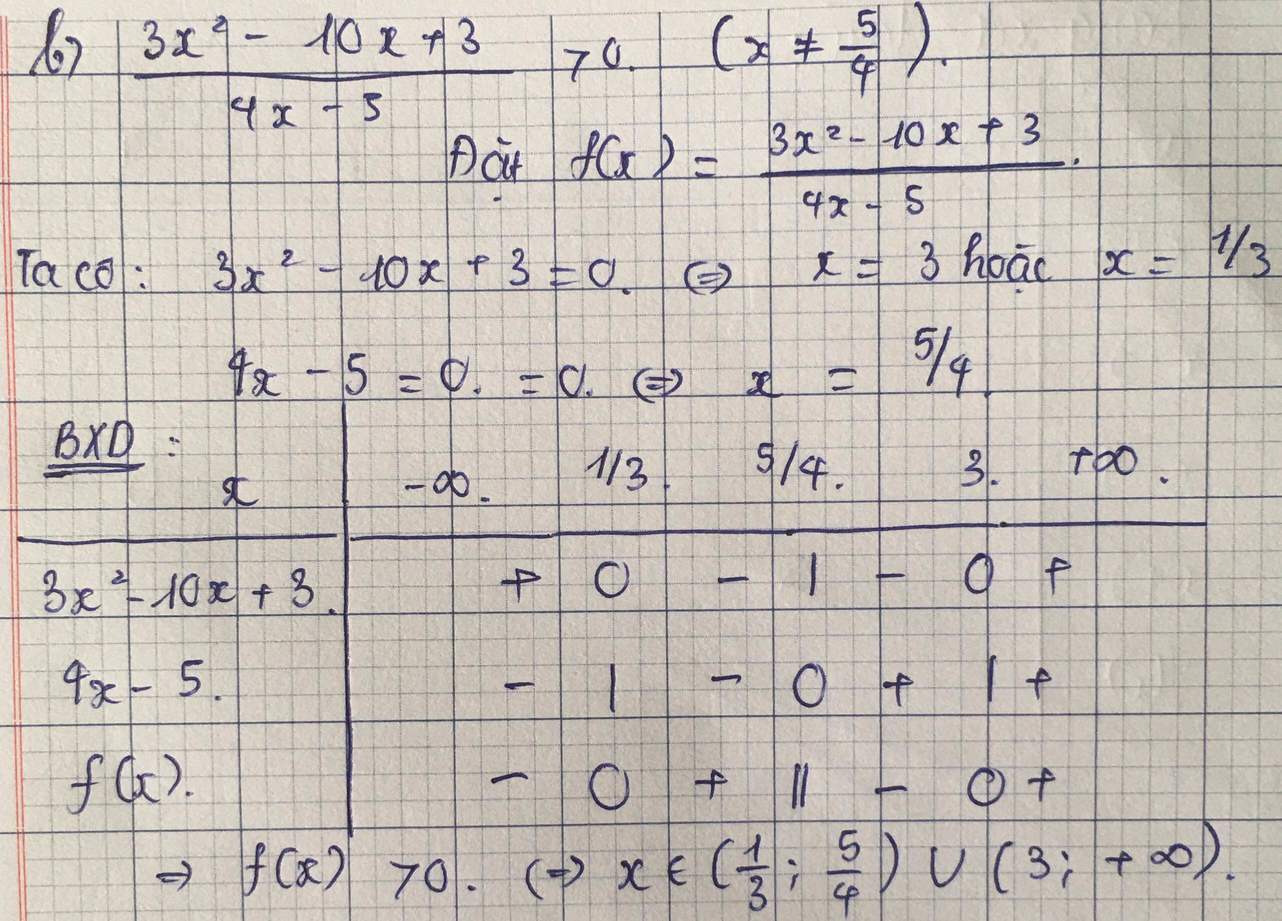 b) (3x² - 10x + 3)/(4x - 5) > 0. (x ≠ 5/4).
Đặt f(x) = (3x² - 10x + 3)/(4x - 5).
Ta có: 3x² - 10x + 3 = 0. ⇔ x = 3 hoặc x = 1/3
4x - 5 = 0. = 0. ⇔ x = 5/4.
BXD:
x | -∞. 1/3. 5/4. 3. +∞.
3x² - 10x + 3. | + 0 - | - 0 +
4x - 5. | - | - 0 + | +
f(x). | - 0 + || - 0 +
⇒ f(x) > 0. ⇔ x ∈ (1/3; 5/4) ∪ (3; +∞).